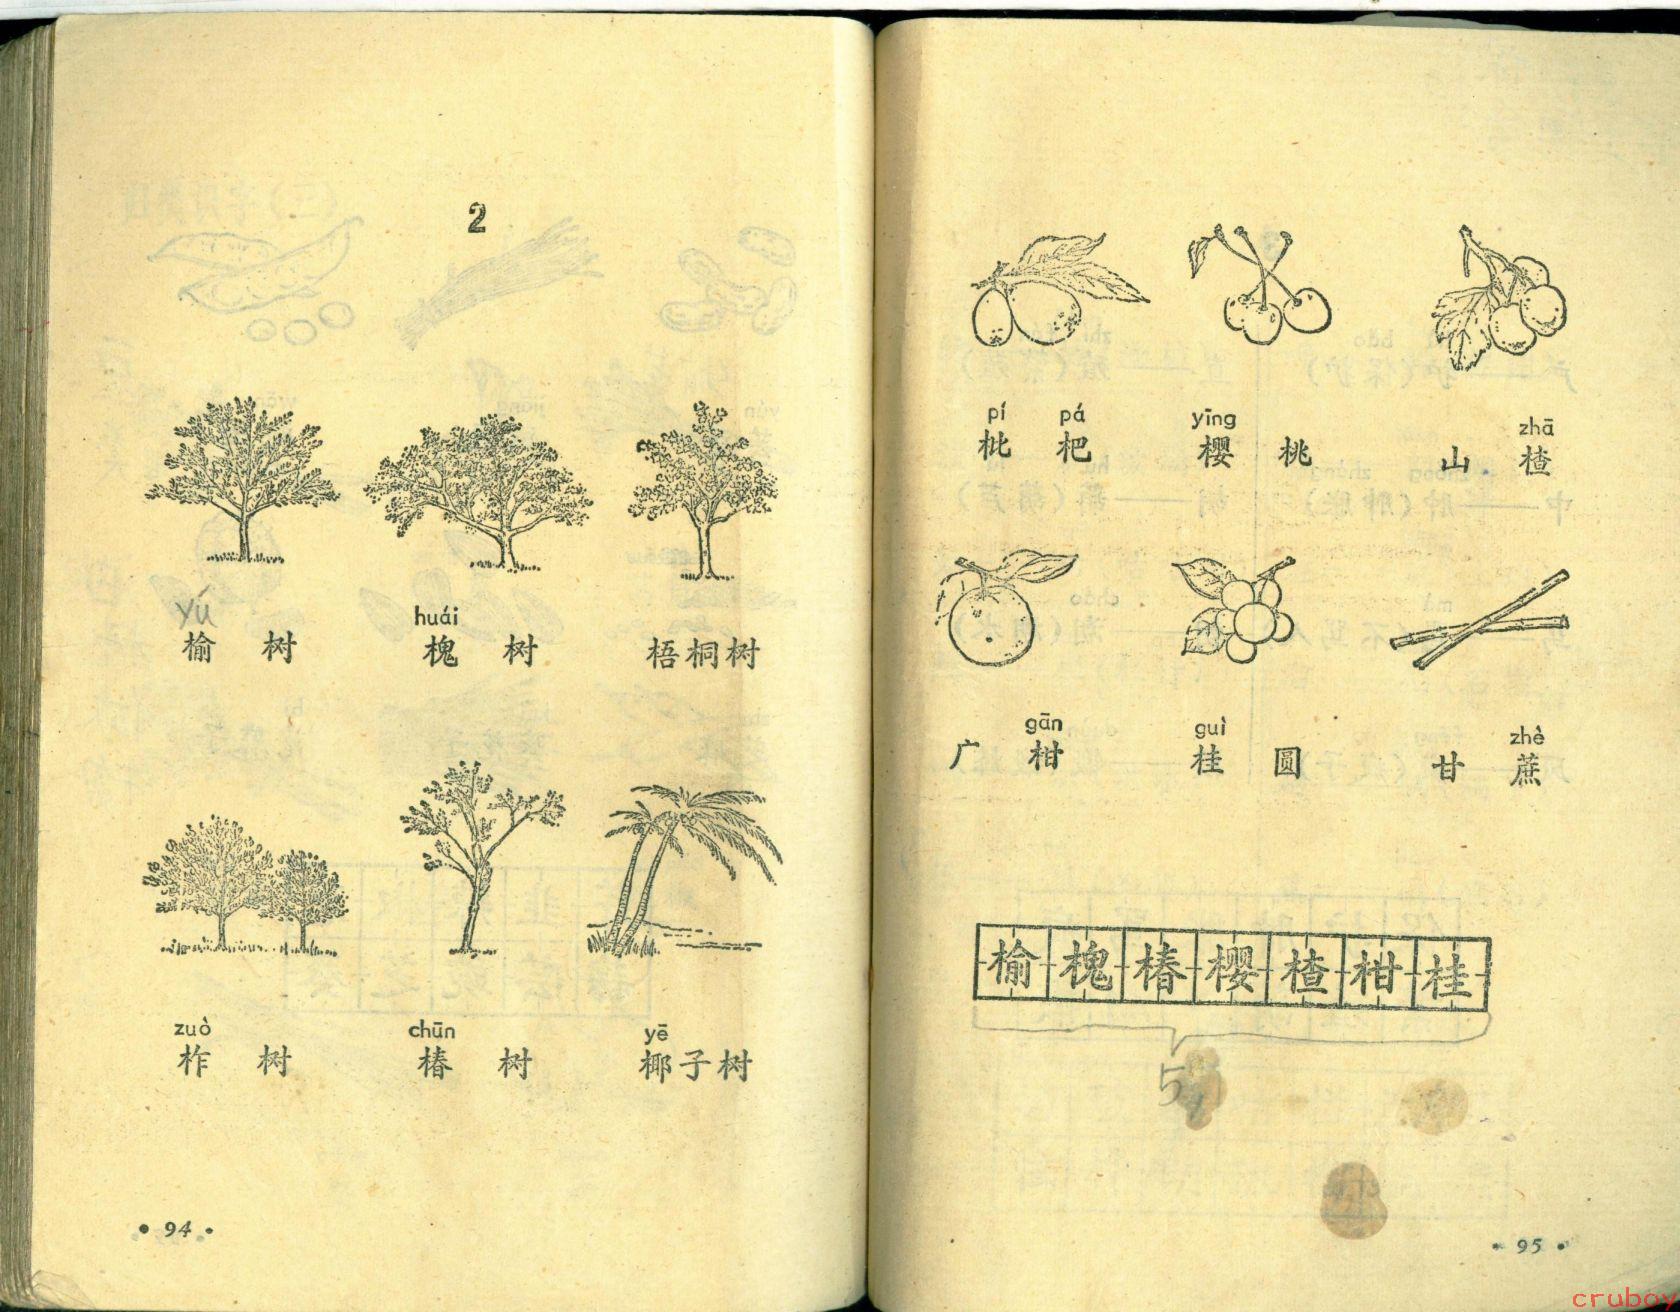 2
yú
榆 树
huái
槐 树
梧桐树
zuò
柞 树
chūn
椿 树
yē
椰子树
• 94 •
pí pá
枇 杷
yīng
樱 桃
zhā
山 楂
gān
广 柑
guì
桂 圆
zhè
甘 蔗
榆槐椿樱楂柑桂
5
• 95 •
cruboy